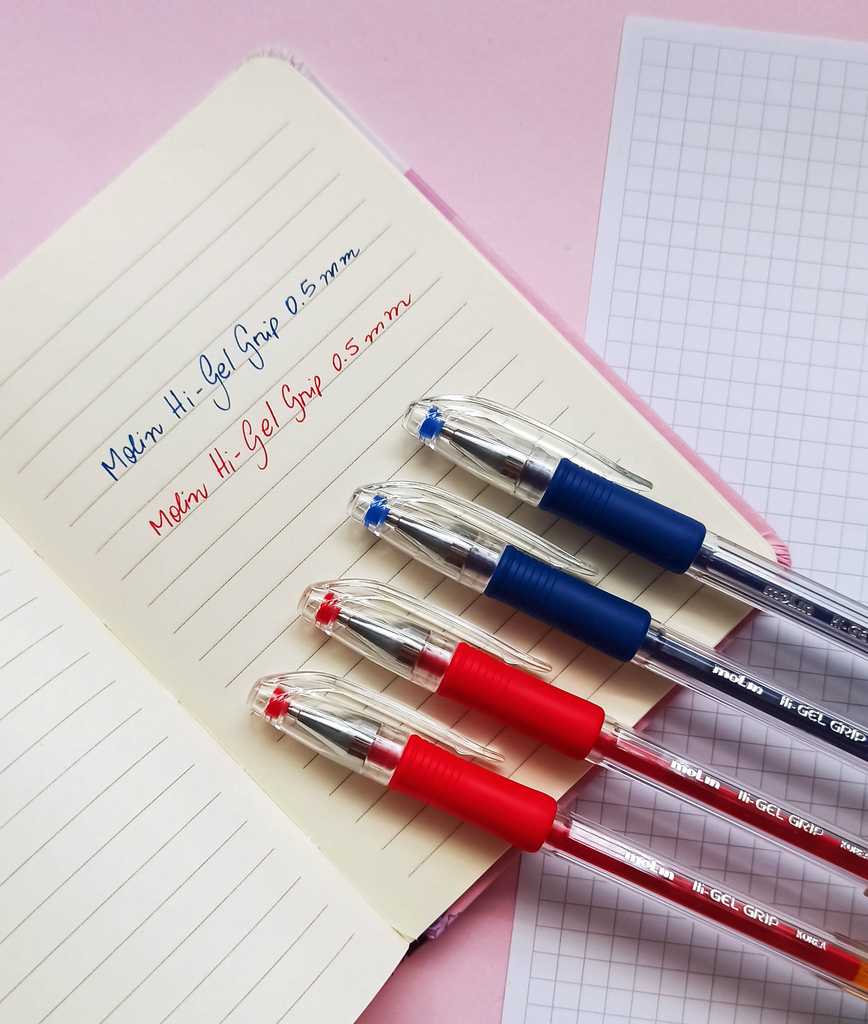 Molin Hi-Gel Grip 0.5 mm
Molin Hi-Gel Grip 0.5 mm
moLin Hi-GEL
moLin Hi-GEL GRIP
moLin Hi-GEL GRIP KOREA
moLin Hi-GEL GRIP KOREA